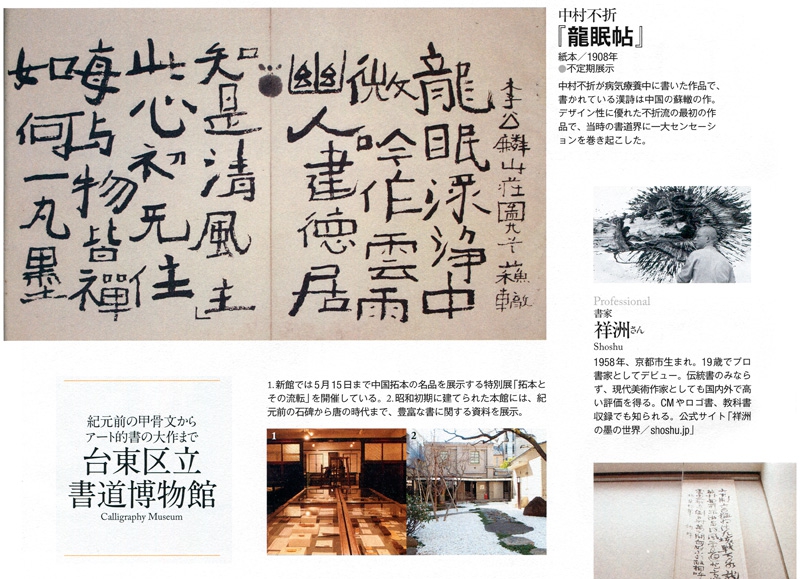 李公麟山莊圖
龍眠深浄中
微吟作雲雨
幽人建德居
知是清風主
此心初无住
每与物皆禪
如何一丸墨
中村不折
『龍眠帖』
紙本／1908年
●不定期展示
中村不折が病気療養中に書いた作品で、
書かれている漢詩は中国の蘇轍の作。
デザイン性に優れた不折流の最初の作
品で、当時の書道界に一大センセーシ
ョンを巻き起こした。
Professional
書家
祥洲さん
Shoshu
1958年、京都市生まれ。19歳でプロ
書家としてデビュー。伝統書のみなら
ず、現代美術作家としても国内外で高
い評価を得る。CMやロゴ書、教科書
収録でも知られる。公式サイト「祥洲
の墨の世界／shoshu.jp」
1.新館では5月15日まで中国拓本の名品を展示する特別展「拓本と
その流転」を開催している。2.昭和初期に建てられた本館には、紀
元前の石碑から唐の時代まで、豊富な書に関する資料を展示。
1
2
紀元前の甲骨文から
アート的書の大作まで
台東区立
書道博物館
Calligraphy Museum